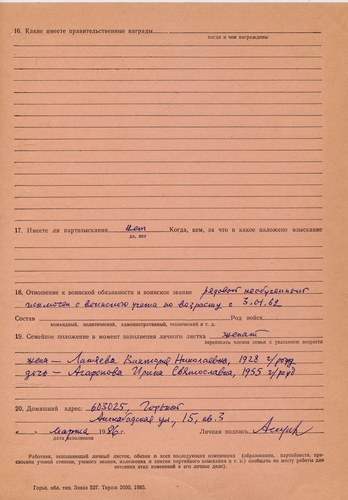 16. Какие имеете правительственные награды
когда и чем награждены
17. Имеете ли партвзыскания нет Когда, кем, за что и какое наложено взыскание
да, нет
18. Отношение к воинской обязанности и воинское звание рядовой необученный
исключен с воинского учета по возрасту с 3.01.62
Состав Род войск
командный, политический, административный, технический и т. д.
19. Семейное положение в момент заполнения личного листка женат
перечислить членов семьи с указанием возраста
жена — Лаптева Виктория Николаевна, 1928 г/рожд
дочь — Агафонова Ирина Святославна, 1955 г/рожд
20. Домашний адрес: 603025, Горький
ул., 15, кв. 3
" " марта 1986 г. Личная подпись
дата заполнения
Работник, заполняющий личный листок, обязан о всех последующих изменениях (образовании, партийности, при-
своении ученой степени, ученого звания, наложении и снятии партийного взыскания и т. п.) сообщать по месту работы для
внесения этих изменений в его личное дело).
Горьк. обл. тип. Заказ 527. Тираж 2000, 1985.